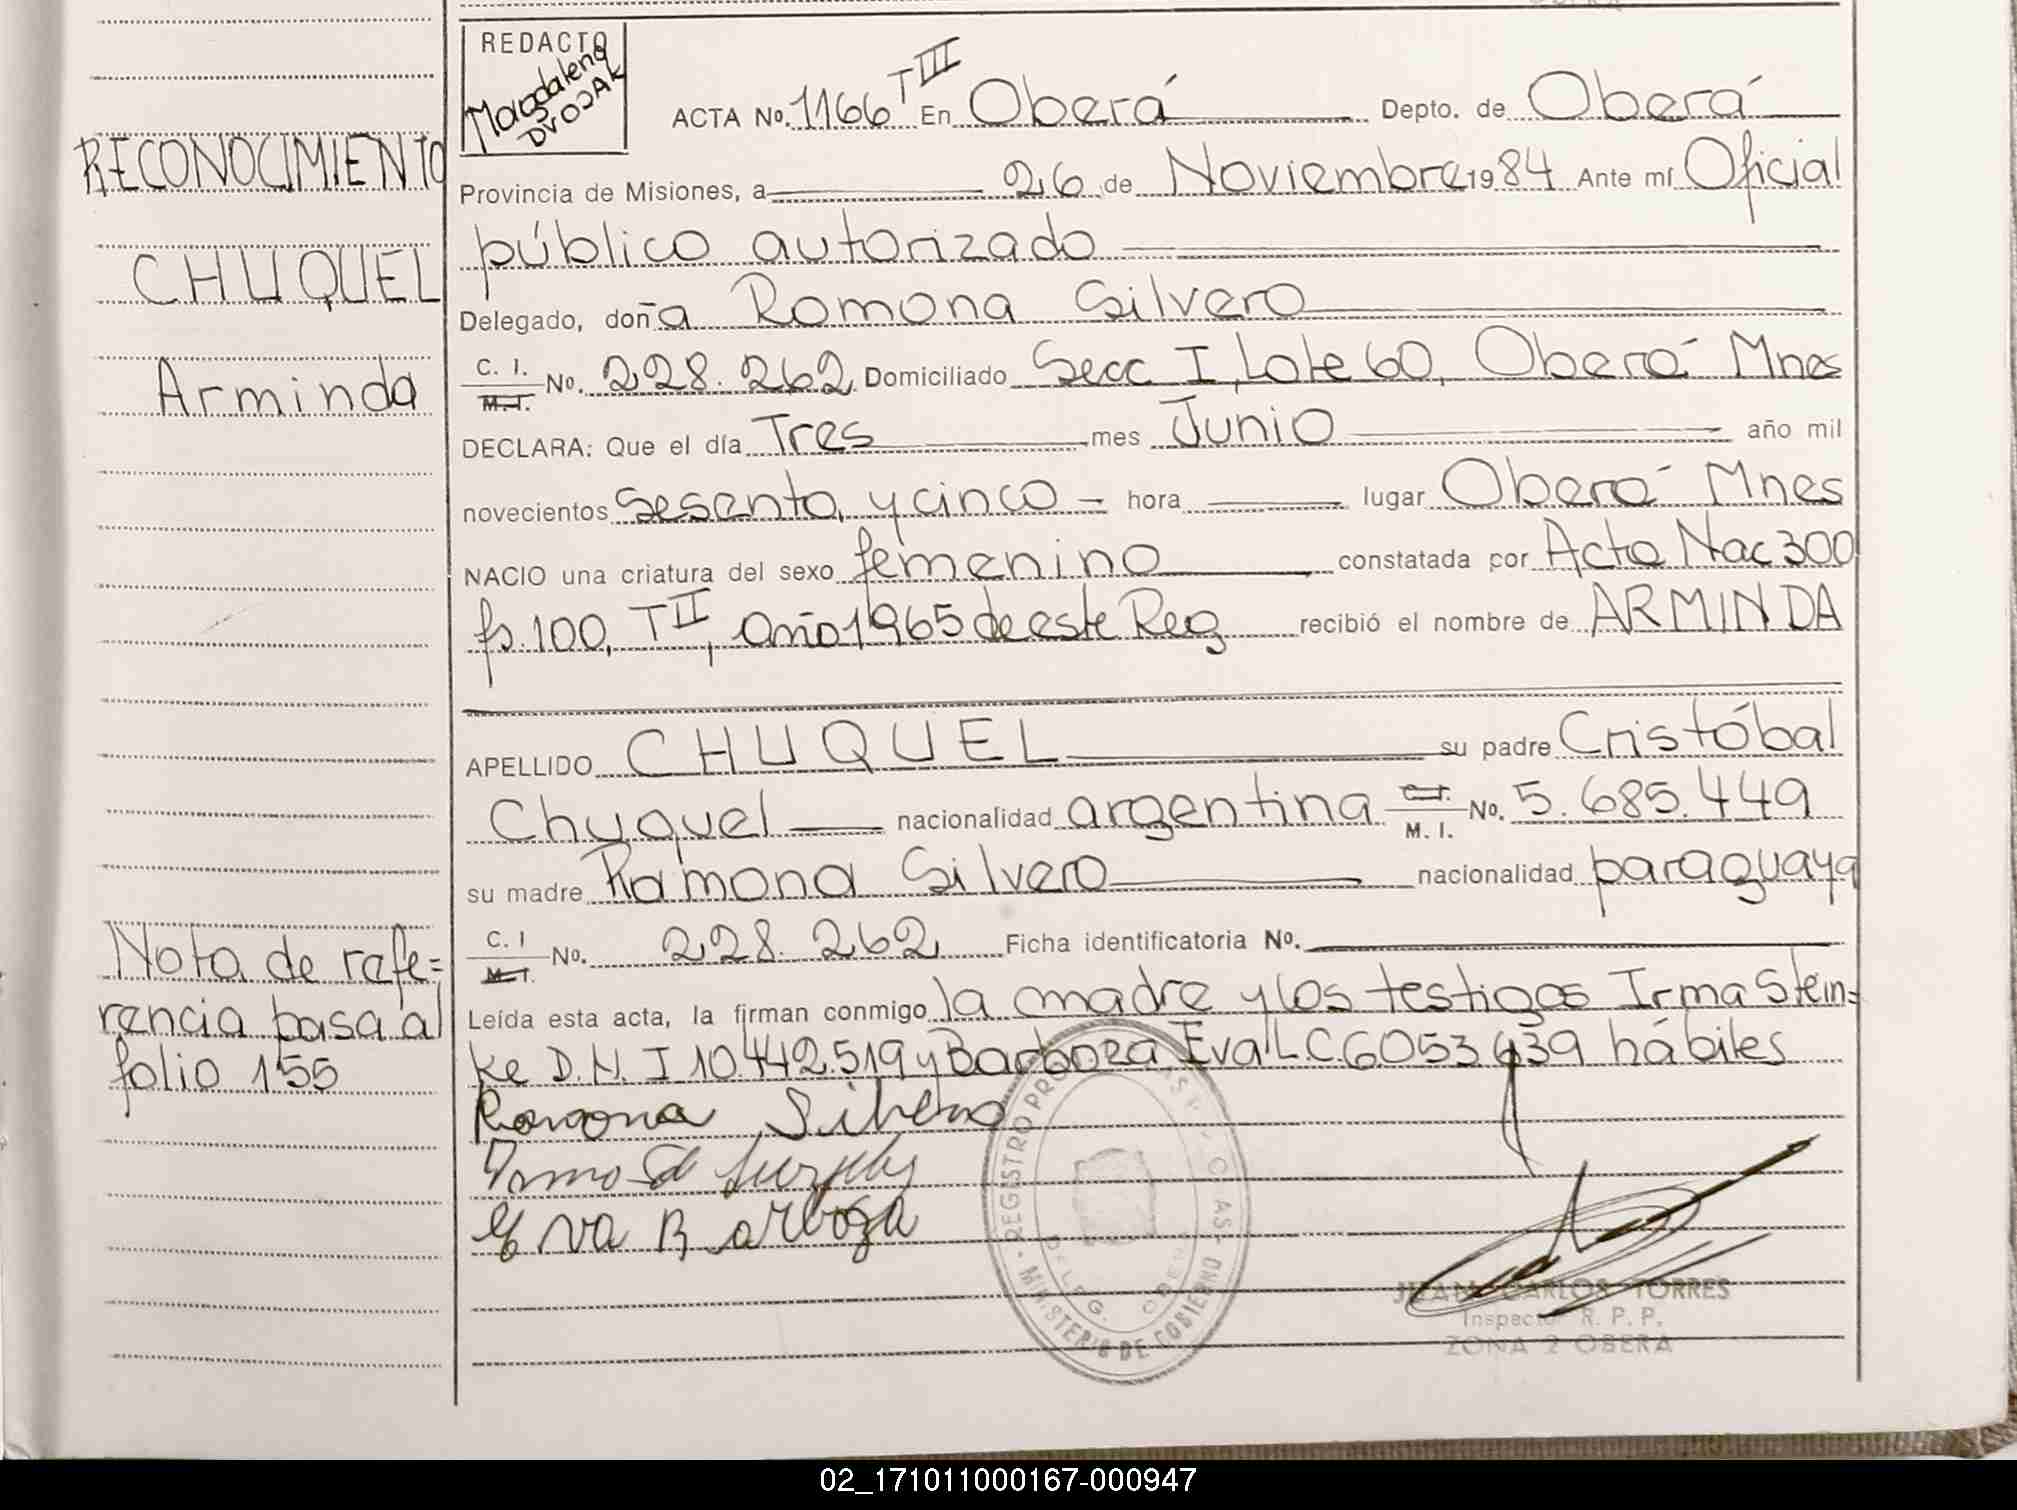 REDACTO
Magdalena
DVOJAK
ACTA No. 1166 T III En Oberá Depto. de Oberá
RECONOCIMIENTO
Provincia de Misiones, a 26 de Noviembre 1984 Ante mí Oficial
público autorizado
CHUQUEL
Delegado, doña Romona Silvero
Arminda
C. I. M. I. No. 228.262 Domiciliado Secc I, Lote 60, Oberá Mnes
DECLARA: Que el día Tres mes Junio año mil
novecientos sesenta y cinco hora lugar Oberá Mnes
NACIO una criatura del sexo femenino constatada por Acta Nac 300
fs. 100, T II, año 1965 de este Reg recibió el nombre de ARMINDA
APELLIDO CHUQUEL su padre Cristóbal
Chuquel nacionalidad argentina C. I. M. I. No. 5.685.449
su madre Ramona Silvero nacionalidad paraguaya
C. I M. I. No. 228.262 Ficha identificatoria No.
Nota de refe=
rencia pasa al
folio 155
Leída esta acta, la firman conmigo la madre y los testigos Irma Stein=
ke D.N.I 10.442.519 y Barboza Eva L.C. 6053639 hábiles
Ramona Silvero
Eva Barboza
REGISTRO PROVINCIAL DE LAS PERSONAS
MINISTERIO DE GOBIERNO
DELEG. OBERA
JUAN CARLOS TORRES
Inspector R. P. P.
ZONA 2 OBERA
02_171011000167-000947